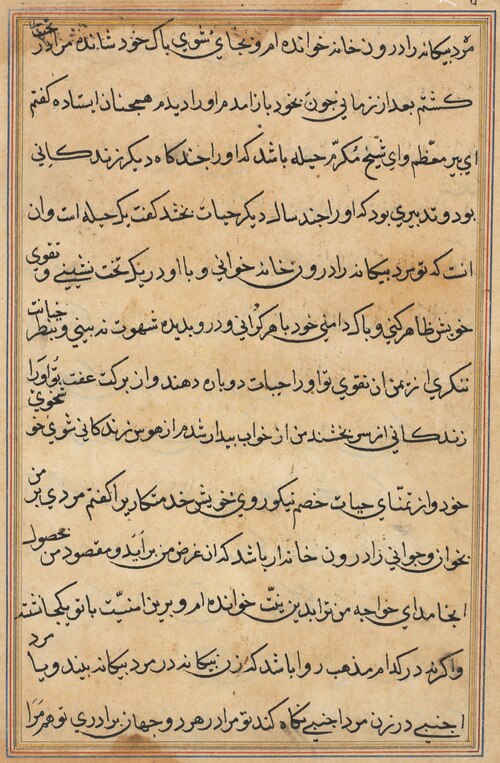 مرد بیکانه را درون خانه خوانده ام و بجای شوی پاک خود نشانده مرا در
کشتم بعد از زمانی چون بخود باز امدم او را دیدم همچنان ایستاده گفتم
ای پیر معظّم و ای شیخ مکرّم حیله باشد که او را چند کاه دیکر زندکانی
بود و تدبیری بود که او را چند سال دیکر حیات بخشد گفت یک حیله است و ان
انست که تو مرد بیکانه را درون خانه خوانی و با او در یک تخت نشینی و تقوی
خویش ظاهر کنی و پاک دامنی خود باهر کرانی و در و بدیده شهوت نه بینی و بنظر خیانت
ننکری از یمن ان تقوی تو او را حیات دوباره دهند و از برکت عفت تو او را
زندکانی از سر بخشند من از خواب بیدار شدم از هوس زندکانی شوی خو
خود و از تمنّای حیات خصم نیکو روی خویش خدمتکار را گفتم مردی بر من
بخوان و جوانی را درون خانه ار باشد که ان غرض من براید و مقصود من محصول
انجامد ای خواجه من ترا بدین نیّت خوانده ام و برین امنیّت با تو یکجا نشته
و اکرنه در کدام مذهب روا باشد که زن بیکانه در مرد بیکانه بیند و یا مرد
اجنبی در زن مرد اجنبی نکاه کند تو مرا در هر دو جهان برادری تو هم مرا